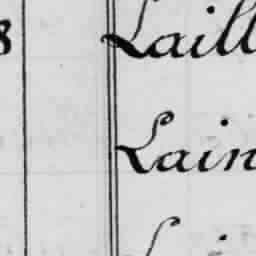 8 Laill
Lain